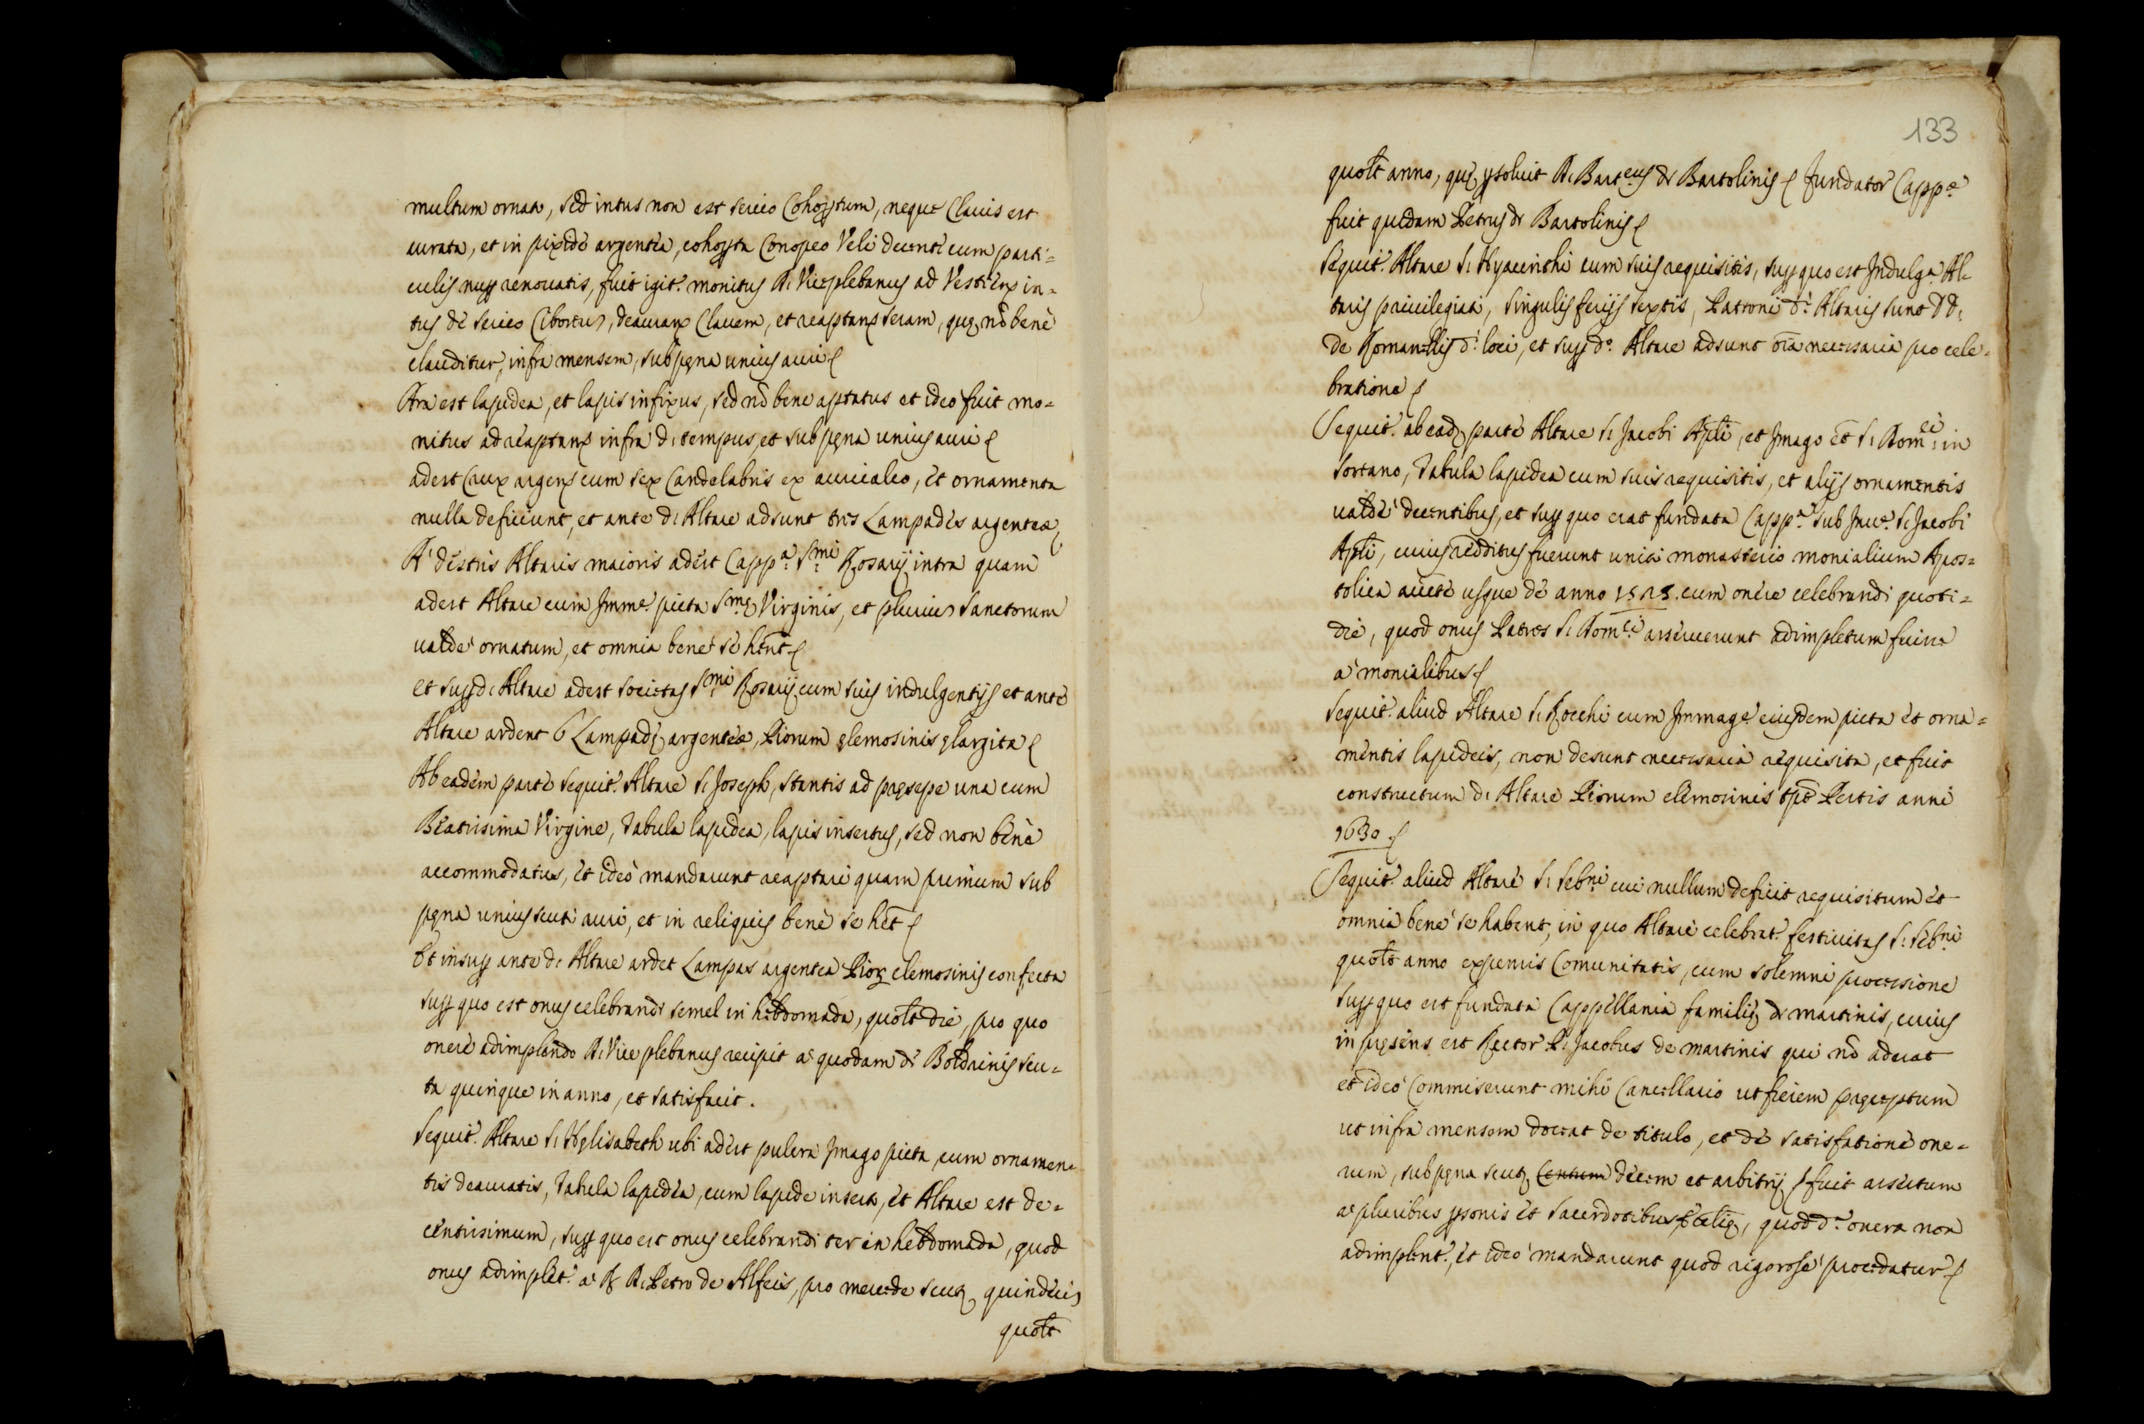 multum ornata, sed intus non est serico Cohoptum, neque Clavis est
aurata, et in pixide argentea, cohopta Conopeo Veli decenti cum parti=
culis nup renovatis, fuit igit. monitus R. Viceplebanus ad Vestiend in=
tus de serico Ciborium, deaurand Clavem, et reaptand seram, que nō bene
clauditur, infra mensem, sub pena unius auri
Ara est lapidea, et lapis infixus, sed nō bene aptatus et ideo fuit mo=
nitus ad reaptand infra d. tempus, et sub pena unius auri
adest Crux argens cum sex Candelabris ex auricalco, et ornamenta
nulla deficiunt, et ante d. Altare adsunt tres Lampades argenteæ
A' destris Altaris maioris adest Capp.a S.mi Rosarij intra quam
adest Altare cum Imm.e picta S.me Virginis, et pluriu) Sanctorum
valde ornatum, et omnia bene se hnt
et sup d. Altare adest societas S.mi Rosarij cum suis indulgentijs et ante
Altare ardent 6 Lampade argenteæ, Piorum elemosinis elargita
Ab eadem parte sequit. Altare S. Joseph, stantis ad presepe una cum
Beatissima Virgine, Tabula lapidea, lapis insertus, sed non bene
accommodatus, et ideo mandarunt reaptari quam primum sub
pena unius scuti auri, et in reliquis bene se het
Et insup ante d. Altare ardet Lampas argentea Pior elemosinis confecta
sup quo est onus celebrandi semel in hebdomada, quolt die, pro quo
onere adimplendo R. Vice plebanus recipit a' quodam de Boldrinis scu=
ta quinque in anno, et satisfacit.
Sequit. Altare S. Helisabeth ubi adest pulcra Imago picta cum ornamen=
tis deauratis, Tabula lapidea, cum lapide inserta, et Altare est de=
centissimum, sup quo est onus celebrandi ter in hebdomada, quod
onus adimplet. a' R. Petro de Alfeis, pro mercede scut quindeci)
quolt
133
quolt anno, que psoluit R. Bart.eus de Bartolinis Fundator Capp.e
fuit quidam Petrus de Bartolinis
Sequit. Altare S. Hyacinthi cum suis requisitis, sup quo est Indulg.a Al=
taris privilegiati, singulis ferijs sextis, Patroni d.i Altaris sunt DD.
de Romanellis d.i loci, et sup d.o Altare adsunt oīa necessaria pro cele=
bratione
Sequit. ab ead parte Altare S. Jacobi Apli, et Imago et S. Rom.ei in
sortano, Tabula lapidea cum suis requisitis, et alijs ornamentis
valde decentibus, et sup quo erat fundata Capp.a sub Inv.e S. Jacobi
Apli, cuius redditus fuerunt uniti monasterio monialium Apos=
tolica aucte usque de anno 1525. cum onere celebrandi quoti=
die, quod onus Patres S. Rom.ei asseruerunt adimpletum fuisse
a' monialibus
Sequit. aliud Altare S. Rocchi cum Immage eiusdem picta et orna=
mentis lapideis, non desunt necessaria requisita, et fuit
constructum d. Altare Piorum elemosinis tpe Pestis anni
1630
Sequit. aliud Altare S. Seb.ni cui nullum deficit requisitum et
omnia bene se habent, in quo Altare celebrat. festivitas S. Seb.ni
quolt anno expensis Comunitatis, cum solemni processione
sup quo est fundata Cappellania familie de Martinis, cuius
in presens est Rector R. Jacobus de Martinis qui nō aderat
et ideo Commiserunt mihi Cancellario ut fierem preceptum
ut infra mensem doceat de titulo, et de satisfatione one=
rum, sub pena scut Centum decem et arbitrij fuit assertum
a' pluribus psonis et Sacerdotibus, quod d.a onera non
adimplent., et ideo mandarunt quod rigorose procedatur